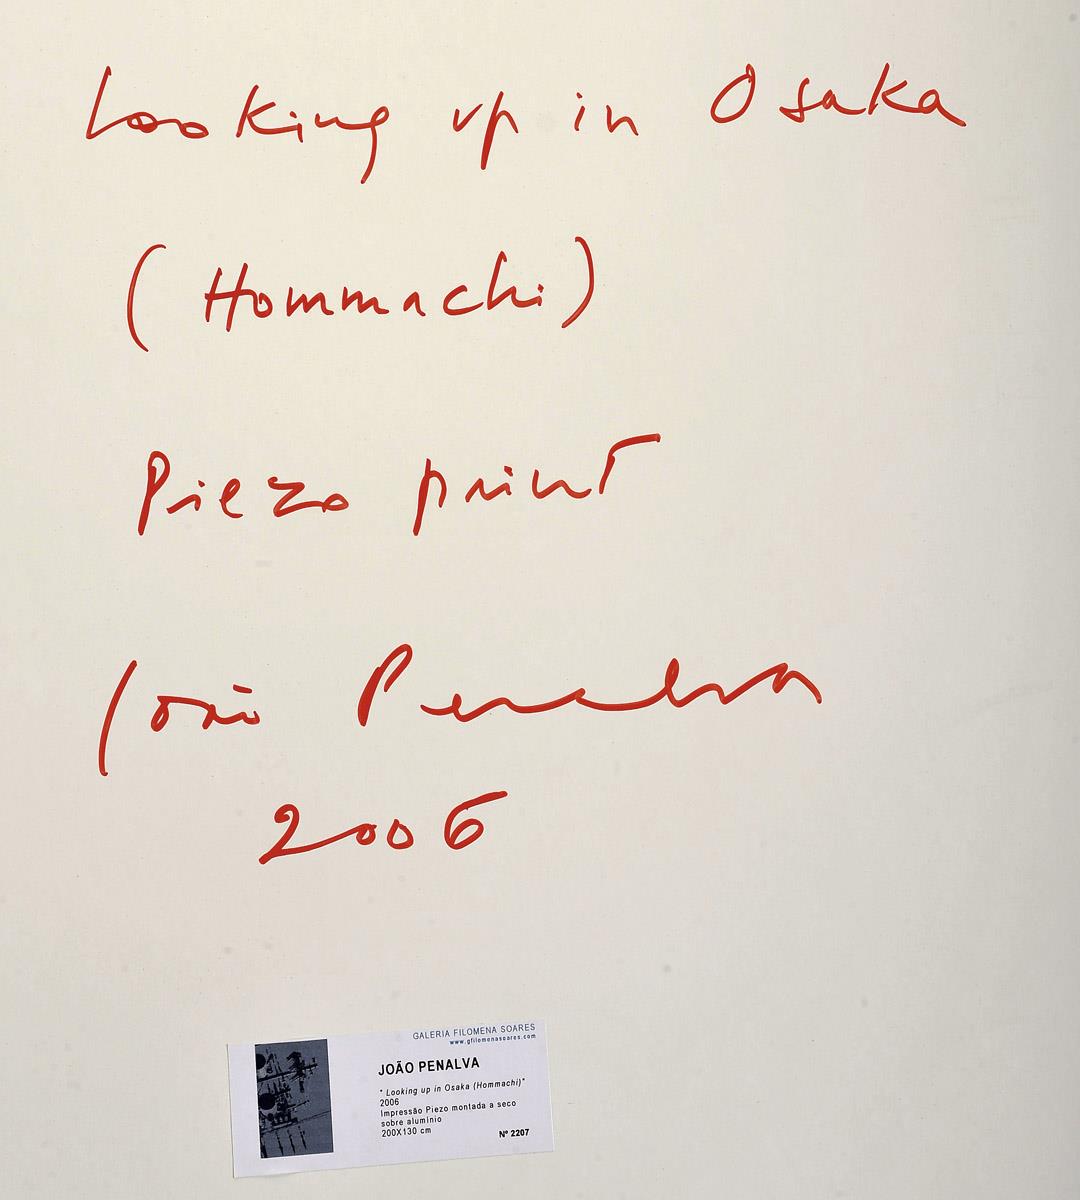 Looking up in Osaka
(Hommachi)
Piezo print
João Penalva
2006
GALERIA FILOMENA SOARES
www.gfilomenasoares.com
JOÃO PENALVA
" Looking up in Osaka (Hommachi)"
2006
Impressão Piezo montada a seco
sobre alumínio
200X130 cm
Nº 2207